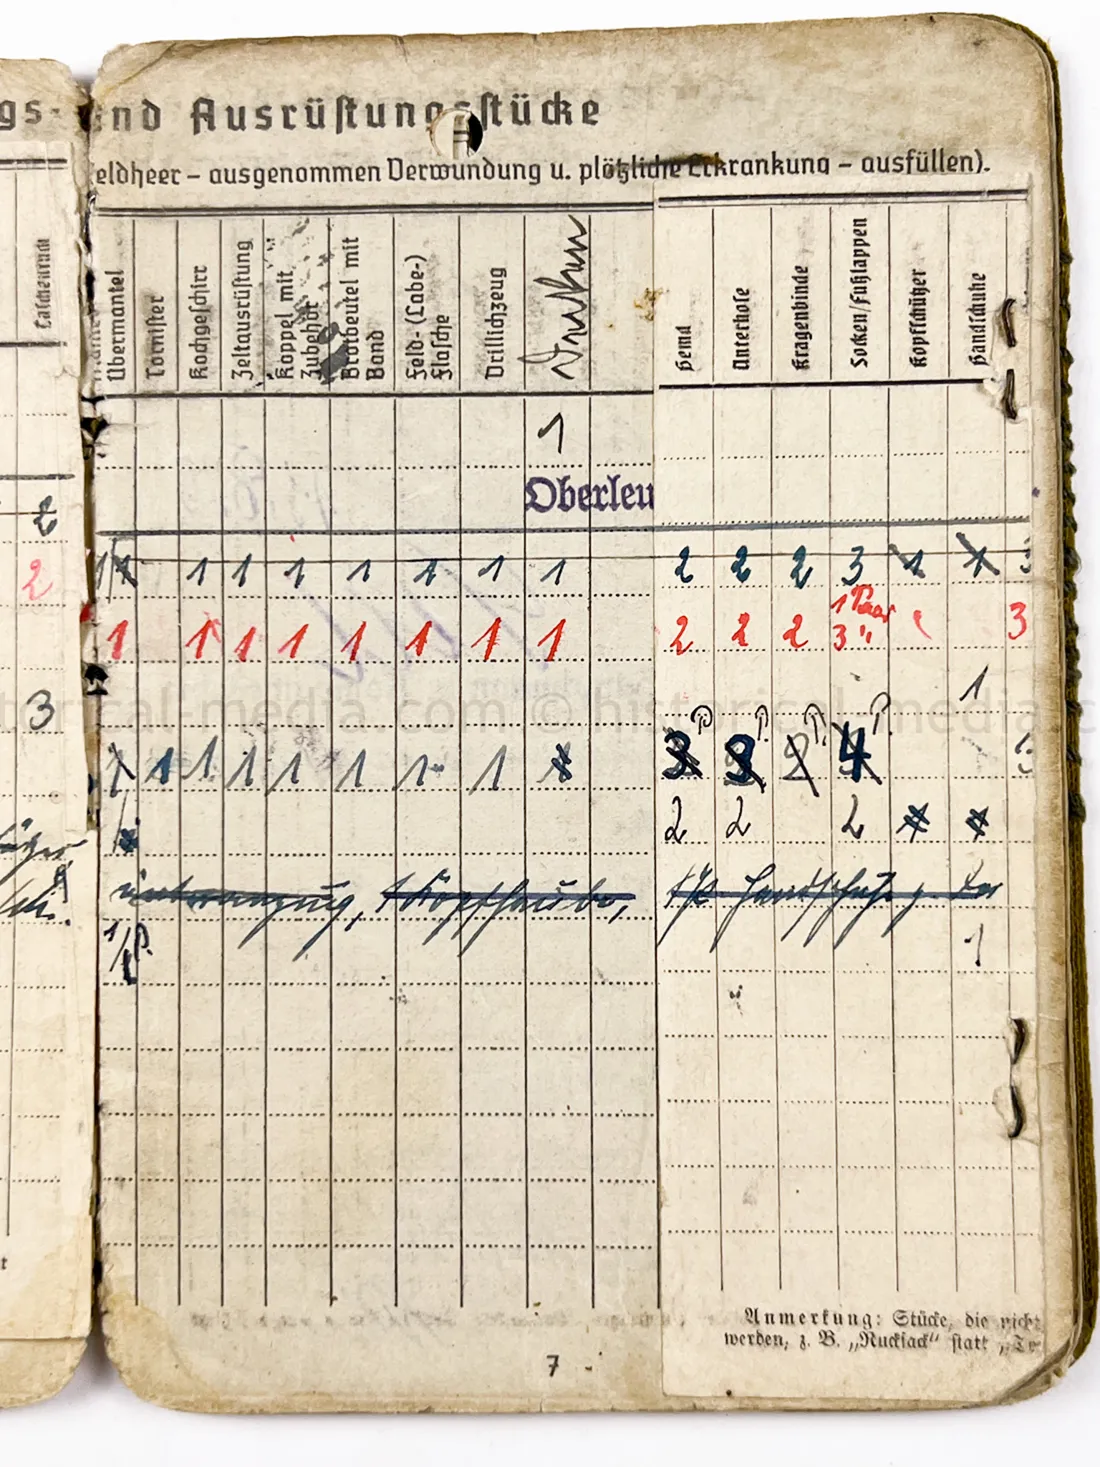 gs- und Ausrüstungsstücke
eldheer – ausgenommen Verwundung u. plötzliche Erkrankung – ausfüllen).
Taschentuch
Übermantel
Tornister
Kochgeschirr
Zeltausrüstung
Koppel mit
Zubehör
Brotbeutel mit
Band
Feld-(Labe-)
flasche
Drillichzeug
Hemd
Unterhose
Kragenbinde
Socken/Fußlappen
Kopfschützer
Handschuhe
1
Oberleu
2
1 1 1 1 1 1 1 1 2 2 2 3 1 1 3
2
1 Paar
1 1 1 1 1 1 1 1 2 2 2 3 " 3
1
3
P. P. P. P.
1 1 1 1 1 1 1 1 3 3 2 4
2 2 2
1 Kopfhaube, Handschuhe
1/1 P. 1
Anmerkung: Stücke, die nicht
werden, z. B. „Rucksack" statt „To
7
historical-media.com © historical-media.c